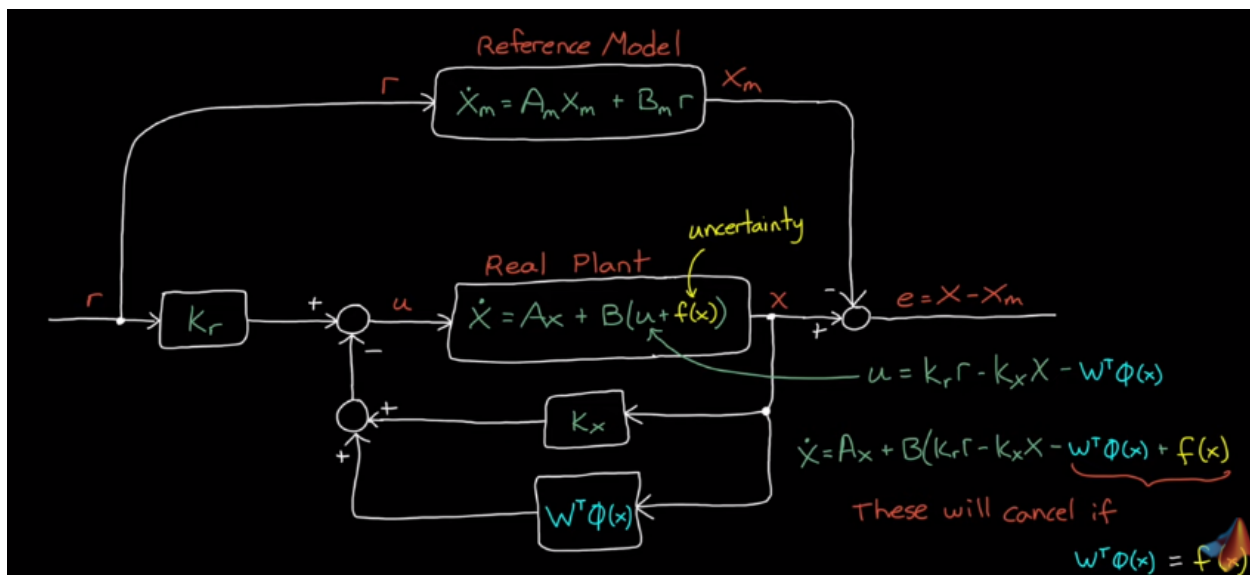 Reference Model
r
ẋₘ = Aₘxₘ + Bₘr
xₘ
uncertainty
Real Plant
r
kᵣ
+
u
ẋ = Ax + B(u + f(x))
x
-
+
e = x - xₘ
-
u = kᵣr - kₓx - Wᵀϕ(x)
+
kₓ
ẋ = Ax + B(kᵣr - kₓx - Wᵀϕ(x) + f(x)
+
Wᵀϕ(x)
These will cancel if
Wᵀϕ(x) = f(x)